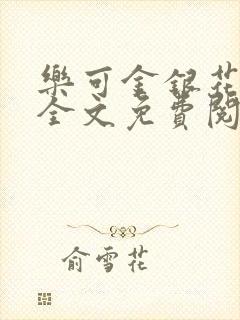 樂可金銀花
全文免費閱
俞雪花